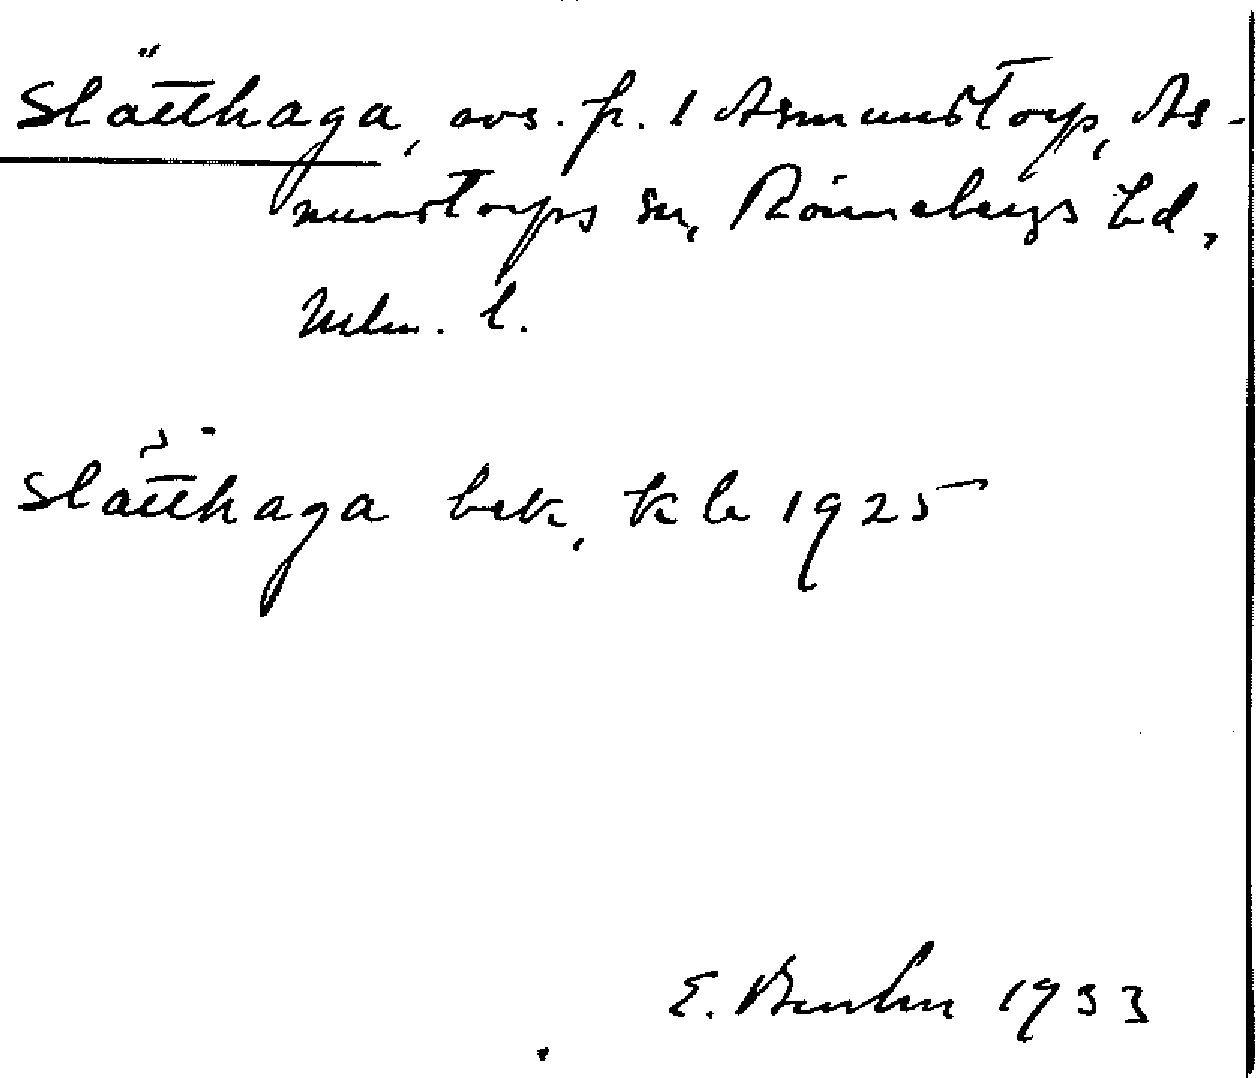 Slätthaga, avs. fr. 1 Asmundtorp, As-
mundtorps sn, Rönnebergs hd,
Mlm. l.
Slätthaga bek, kle 1925
E. 1933